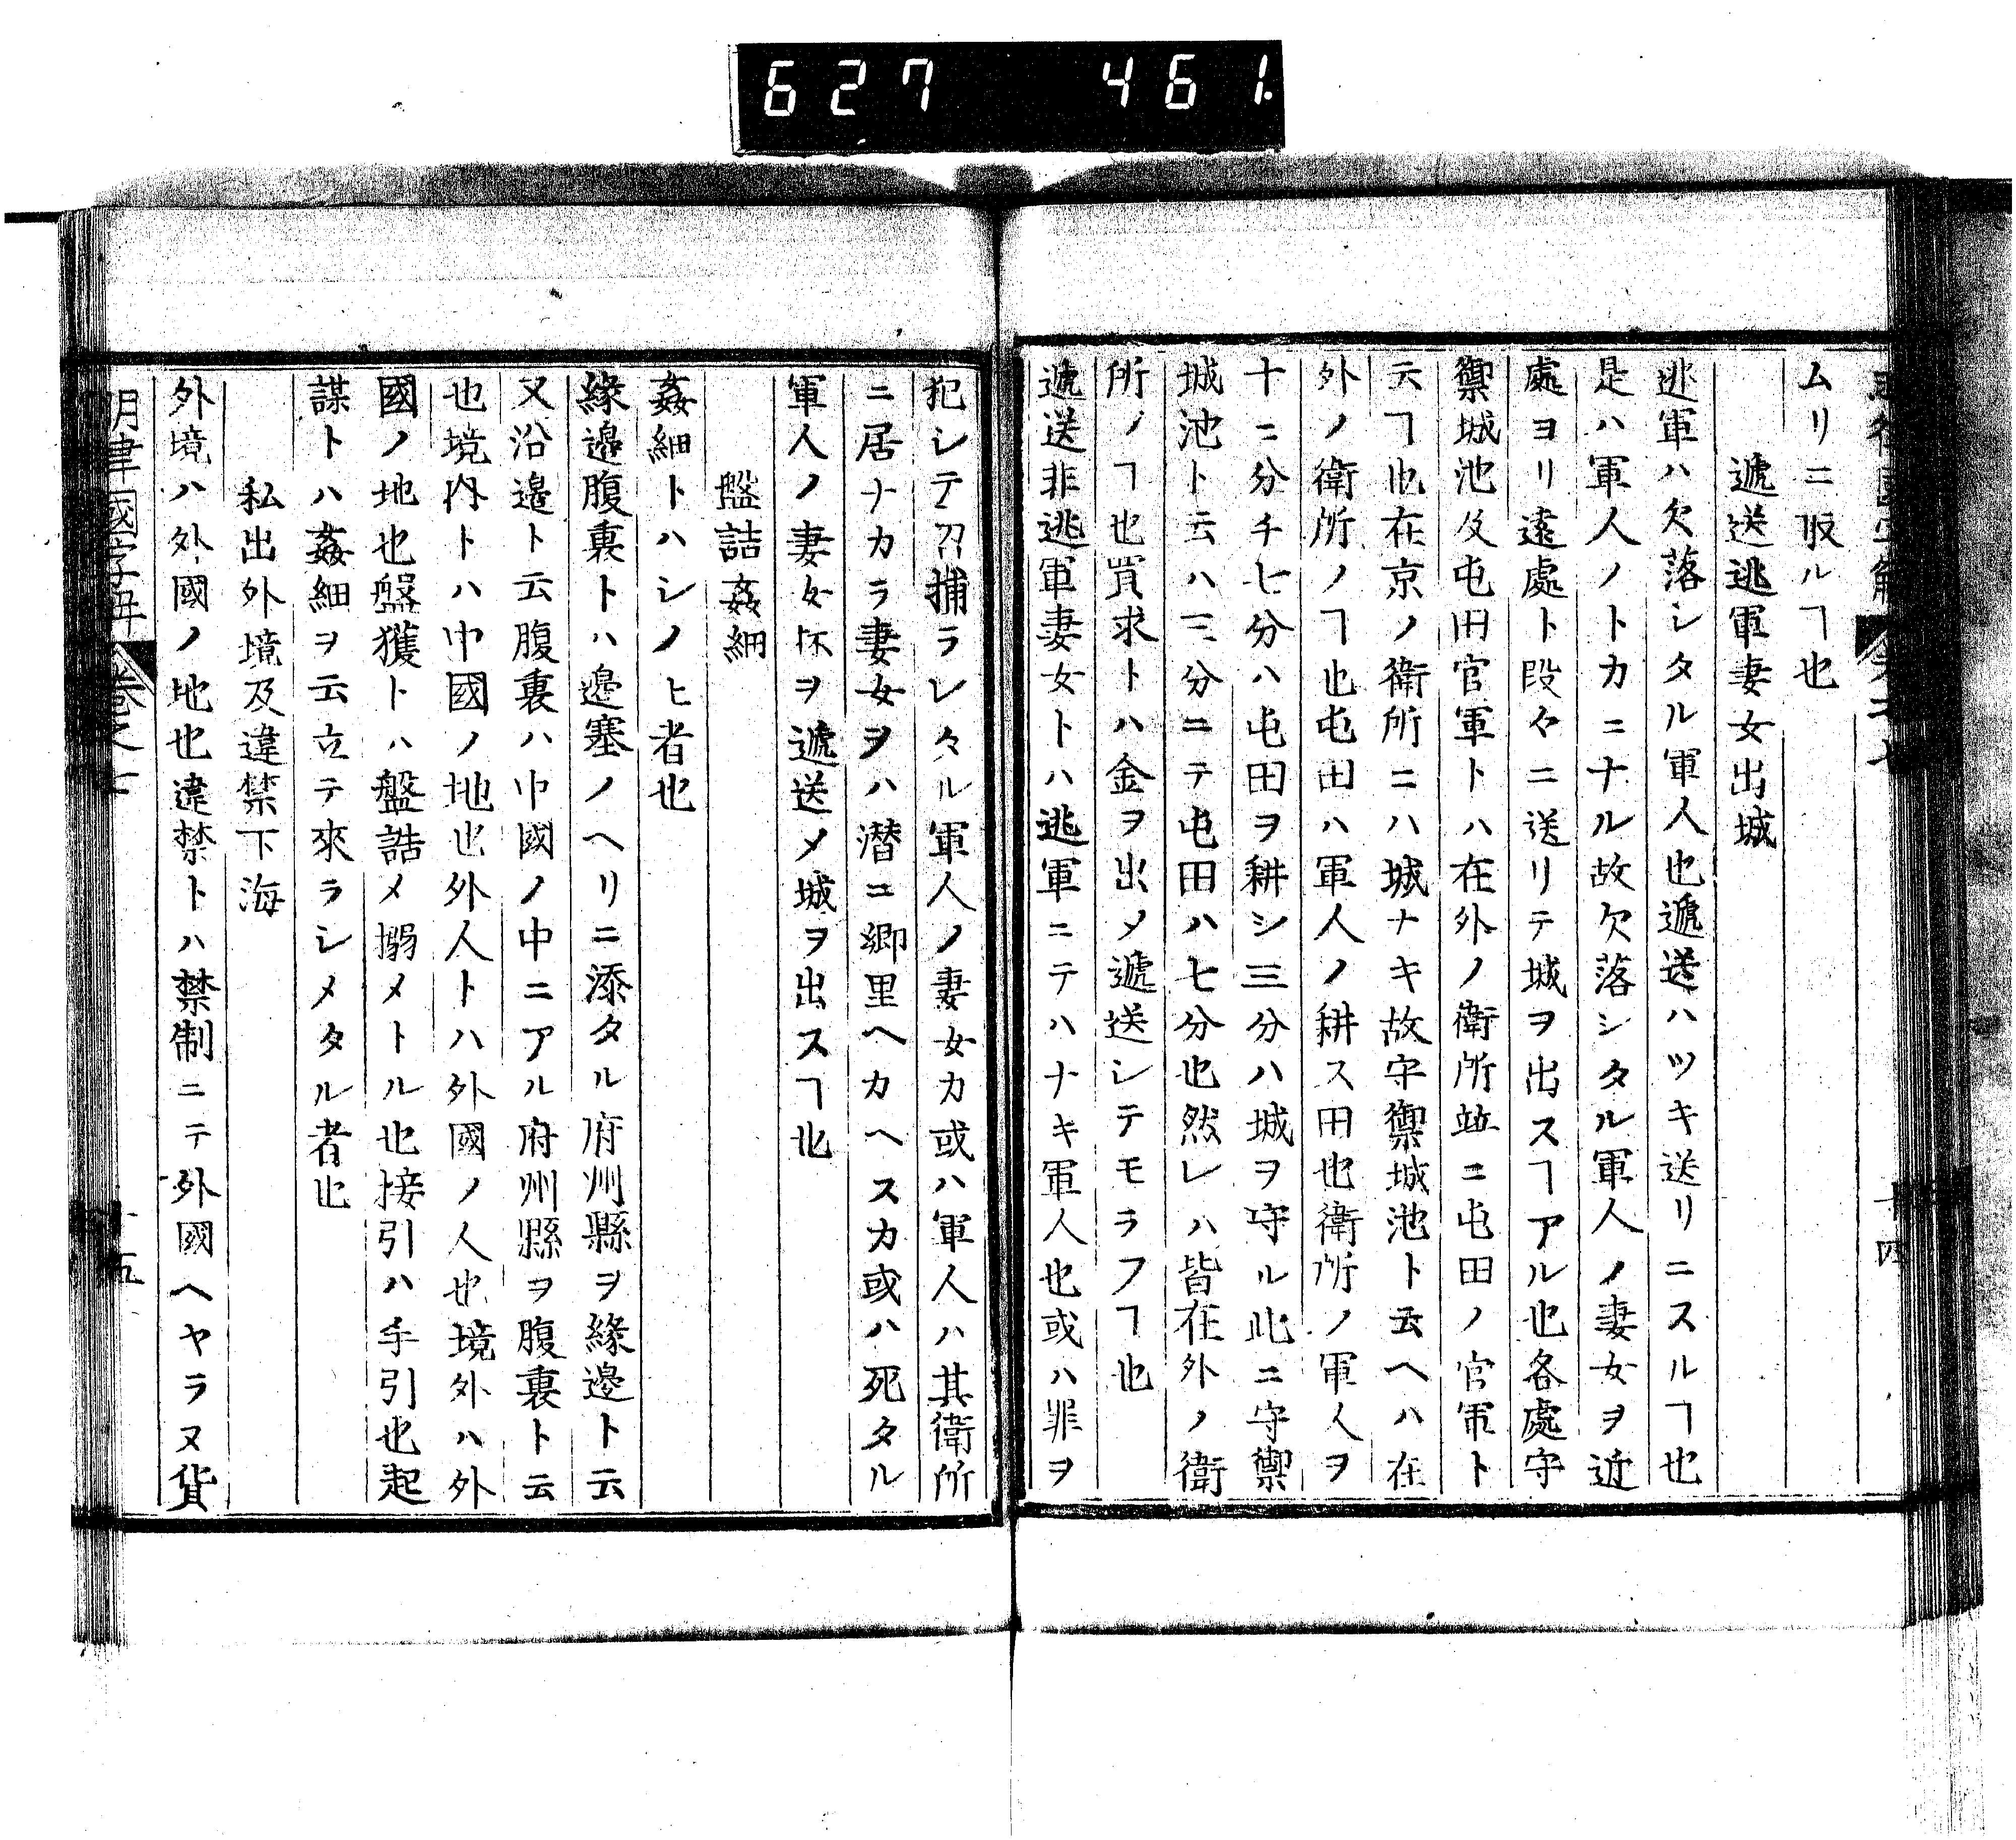 627 461
ムリニ取ルヿ也
遞送逃軍妻女出城
逃軍ハ欠落シタル軍人也遞送ハツキ送リニスルヿ也
是ハ軍人ノトカニナル故欠落シタル軍人ノ妻女ヲ近
處ヨリ遠處ト段々ニ送リテ城ヲ出スヿアル也各處守
禦城池及屯田官軍トハ在外ノ衛所竝ニ屯田ノ官軍ト
云ヿ也在京ノ衛所ニハ城ナキ故守禦城池ト云ヘハ在
外ノ衛所ノヿ也屯田ハ軍人ノ耕ス田也衛所ノ軍人ヲ
十ニ分チ七分ハ屯田ヲ耕シ三分ハ城ヲ守ル此ニ守禦
城池ト云ハ三分ニテ屯田ハ七分也然レハ皆在外ノ衛
所ノヿ也買求トハ金ヲ出メ遞送シテモラフヿ也
遞送非逃軍妻女トハ逃軍ニテハナキ軍人也或ハ罪ヲ
犯シテ召捕ラレタル軍人ノ妻女カ或ハ軍人ハ其衛所
ニ居ナカラ妻女ヲハ潜ニ郷里ヘカヘスカ或ハ死タル
軍人ノ妻女抔ヲ遞送メ城ヲ出スヿ也
盤詰姦細
姦細トハシノヒ者也
緣邊腹裏トハ邊塞ノヘリニ添タル府州縣ヲ緣邊ト云
又沿邊ト云腹裏ハ中國ノ中ニアル府州縣ヲ腹裏ト云
也境内トハ中國ノ地也外人トハ外國ノ人也境外ハ外
國ノ地也盤獲トハ盤詰メ搦メトル也接引ハ手引也起
謀トハ姦細ヲ云立テ來ラシメタル者也
私出外境及違禁下海
外境ハ外國ノ地也違禁トハ禁制ニテ外國ヘヤラヌ貨
明律國字解 卷之七 十五